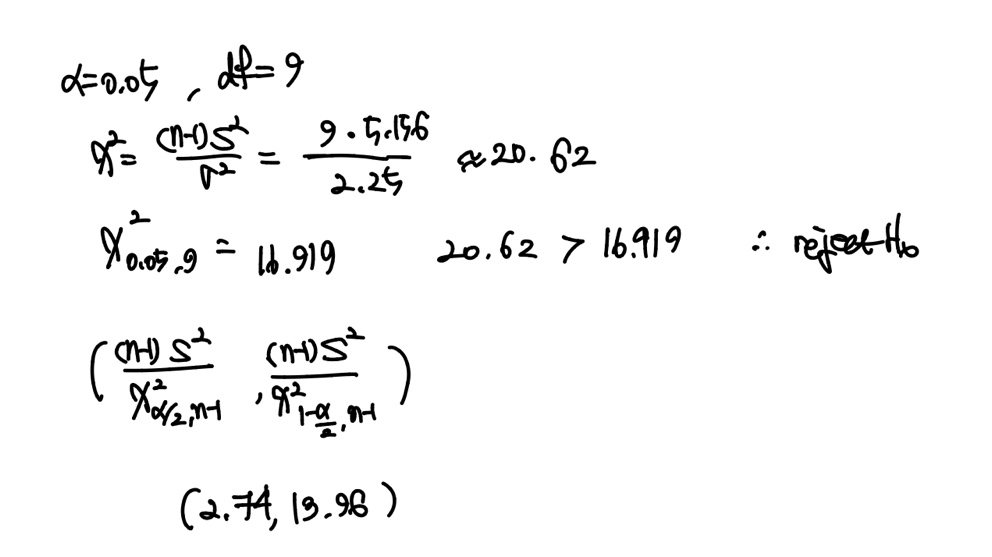 α=0.05 , df=9
χ² = (n-1)S²/σ² = 9·5.156/2.25 ≈ 20.62
χ²0.05,9 = 16.919 20.62 > 16.919 ∴ reject H₀
( (n-1)S²/χ²α/2,n-1 , (n-1)S²/χ²1-α/2,n-1 )
(2.74, 13.96)